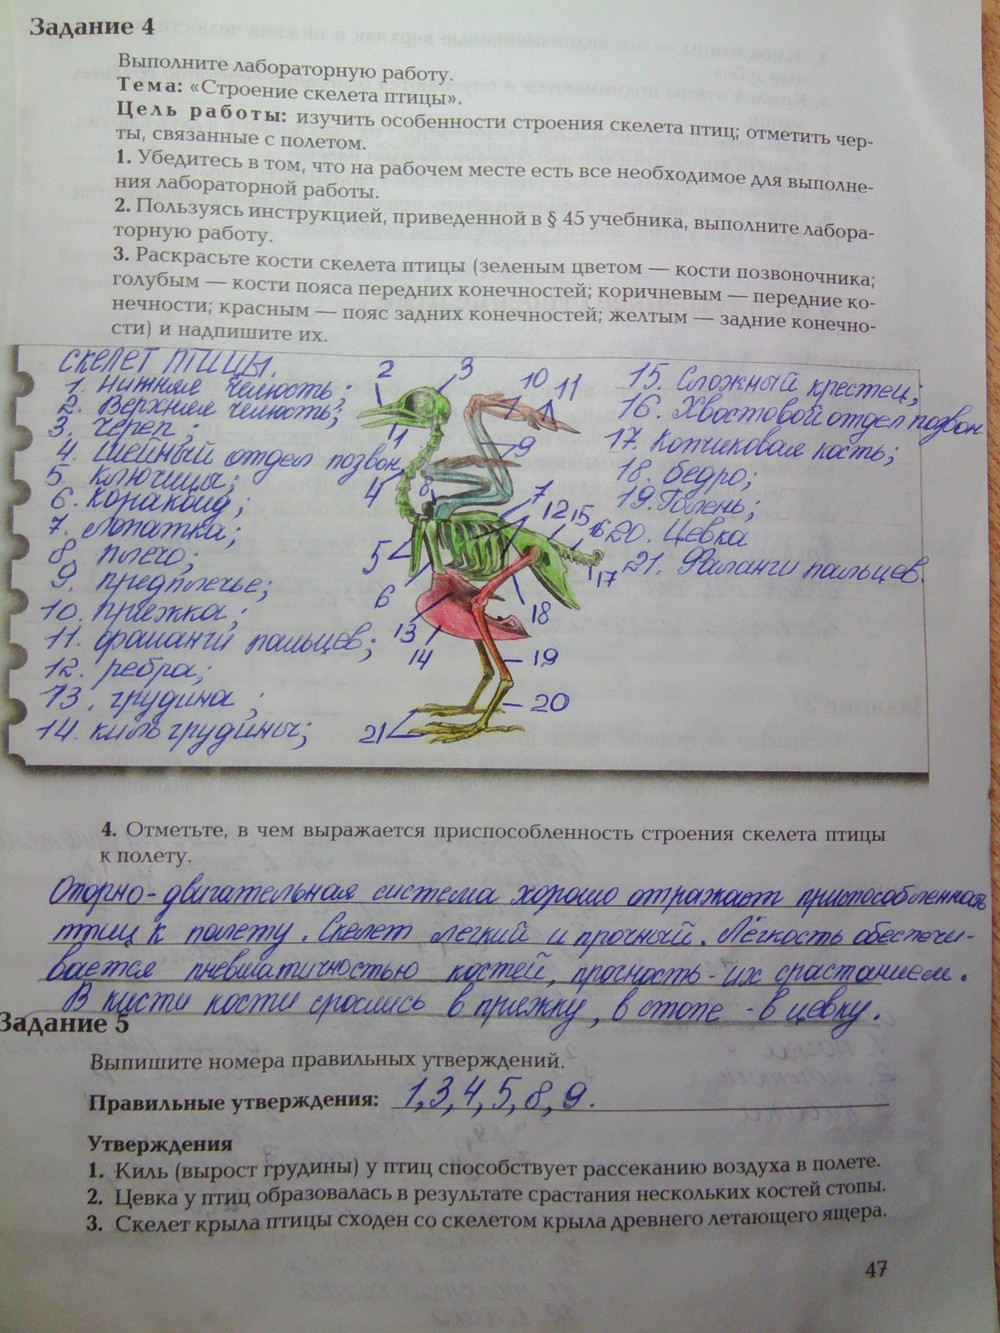 Задание 4
Выполните лабораторную работу.
Тема: «Строение скелета птицы».
Цель работы: изучить особенности строения скелета птиц; отметить чер-
ты, связанные с полетом.
1. Убедитесь в том, что на рабочем месте есть все необходимое для выполне-
ния лабораторной работы.
2. Пользуясь инструкцией, приведенной в § 45 учебника, выполните лабора-
торную работу.
3. Раскрасьте кости скелета птицы (зеленым цветом — кости позвоночника;
голубым — кости пояса передних конечностей; коричневым — передние ко-
нечности; красным — пояс задних конечностей; желтым — задние конечно-
сти) и надпишите их.
СКЕЛЕТ ПТИЦЫ.
1. Нижняя челюсть;
2. Верхняя челюсть;
3. Череп;
4. Шейный отдел позвон.
5. Ключицы;
6. Коракоид;
7. Лопатка;
8. плечо;
9. предплечье;
10. пряжка;
11. фаланги пальцев;
12. ребра;
13. грудина;
14. киль грудины;
2
3
10
11
11
9
4
8
7
12
15
16
5
17
6
18
13
14
19
20
21
15. Сложный крестец;
16. Хвостовой отдел позвон.
17. Копчиковая кость;
18. бедро;
19. Голень;
20. Цевка
21. Фаланги пальцев.
4. Отметьте, в чем выражается приспособленность строения скелета птицы
к полету.
Опорно-двигательная система хорошо отражает приспособленность
птиц к полету. Скелет легкий и прочный. Лёгкость обеспечи-
вается пневматичностью костей, прочность - их срастанием.
В кисти кости срослись в пряжку, в стопе - в цевку.
Задание 5
Выпишите номера правильных утверждений.
Правильные утверждения: 1,3,4,5,8,9.
Утверждения
1. Киль (вырост грудины) у птиц способствует рассеканию воздуха в полете.
2. Цевка у птиц образовалась в результате срастания нескольких костей стопы.
3. Скелет крыла птицы сходен со скелетом крыла древнего летающего ящера.
47